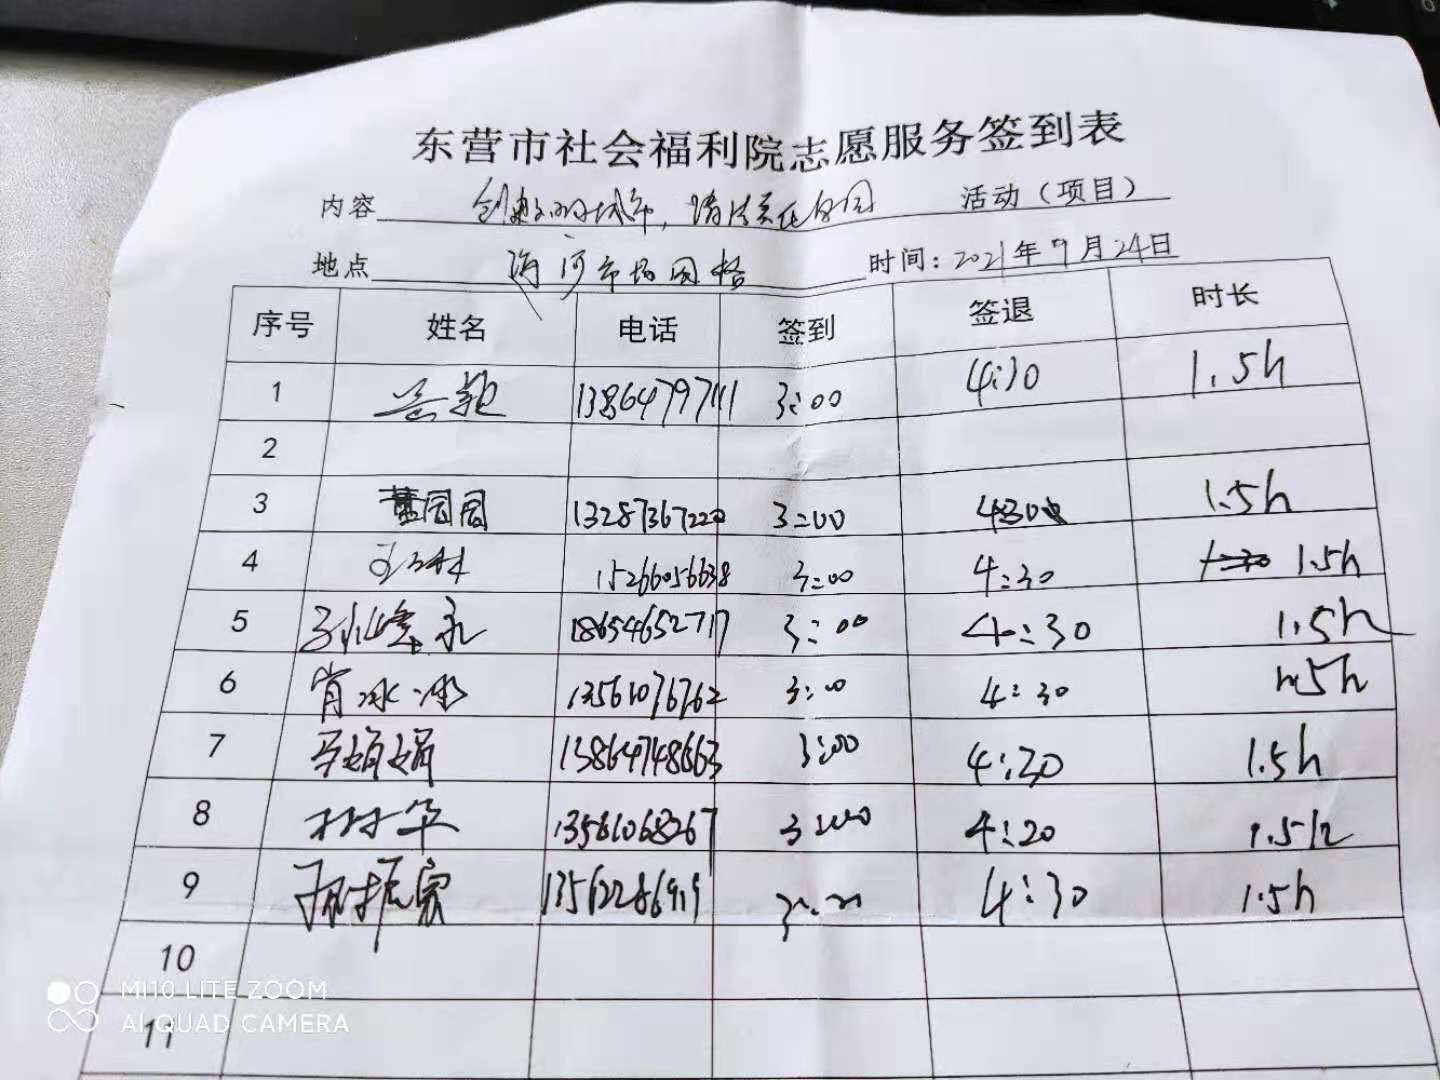 东营市社会福利院志愿服务签到表
内容 创建文明城市，清洁美化家园 活动（项目）
地点 海河市场网格 时间：2021年9月24日
序号 姓名 电话 签到 签退 时长
1 13864797111 3:00 4:30 1.5h
2
3 董园园 13287367220 3:00 4:30 1.5h
4 15266056638 3:00 4:30 1.5h
5 孙峰永 18654652717 3:00 4:30 1.5h
6 肖冰冰 13561076762 3:00 4:30 1.5h
7 马娟娟 13864748663 3:00 4:30 1.5h
8 林华 13561068267 3:00 4:20 1.5h
9 13562286919 4:30 1.5h
10
11
MI 10 LITE ZOOM
AI QUAD CAMERA